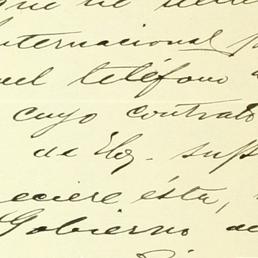 que he
nternacional
uel teléfono
cuyo contrato
de Eloy. sup
eciere ésta,
Gobierno de